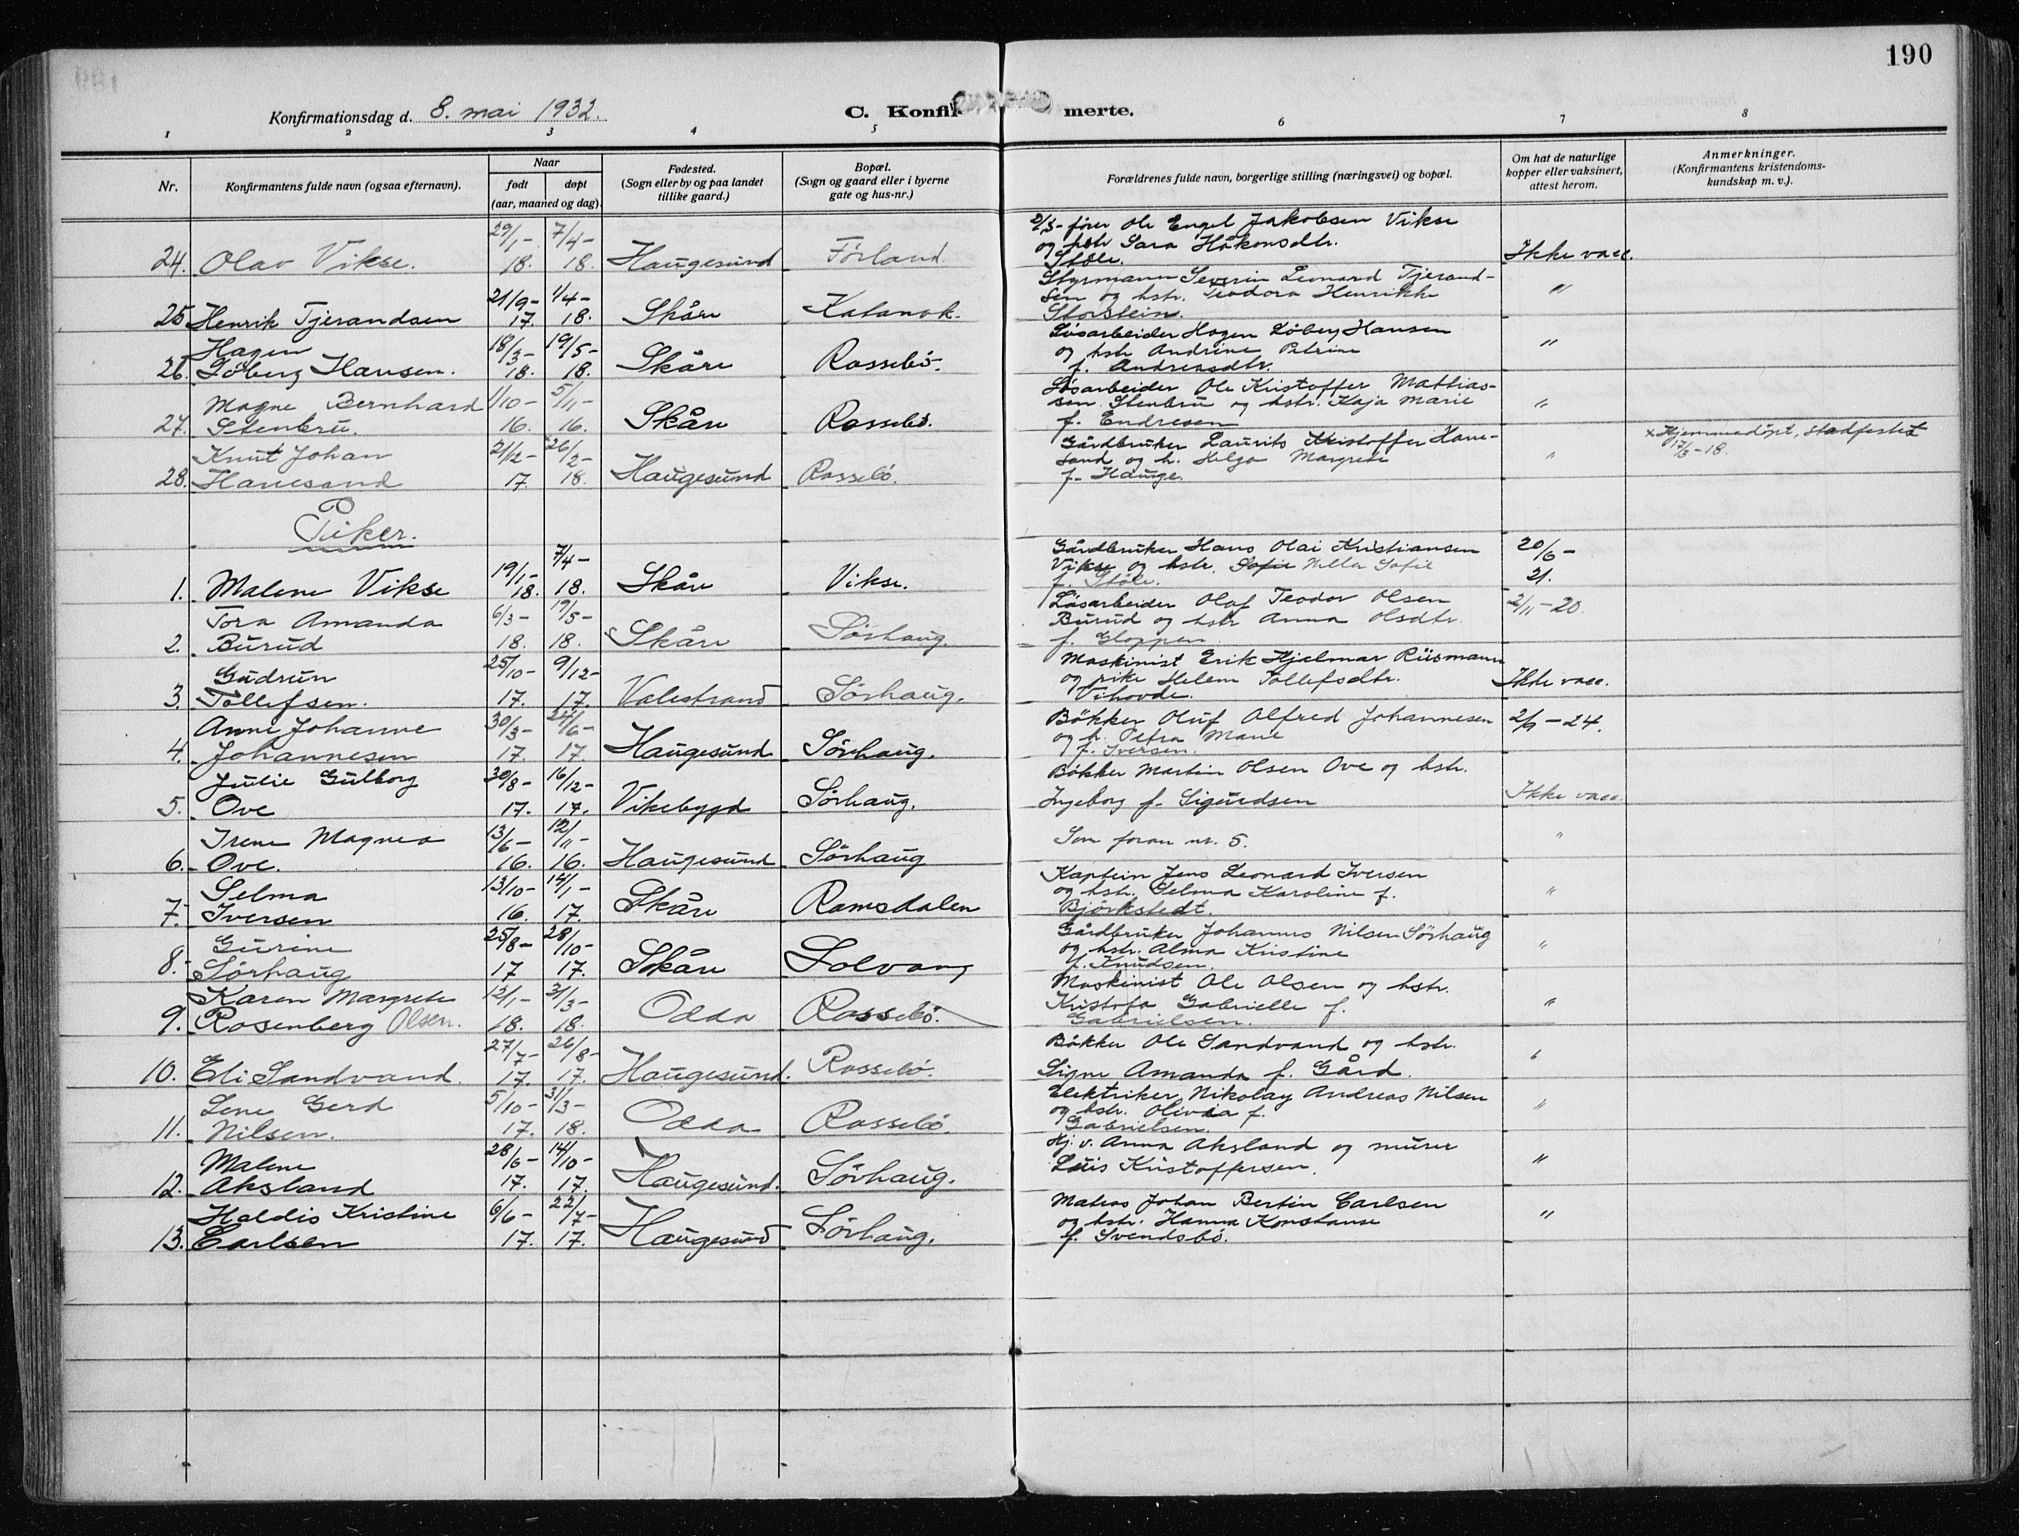 190
Konfirmationsdag d. 8. mai 1932.
C. Konfir- merte.
1 2 3 4 5 6 7 8
Nr.
Konfirmantens fulde navn (ogsaa efternavn).
Naar
født døpt
(aar, maaned og dag).
Fødested.
(Sogn eller by og paa landet
tillike gaard.)
Bopæl.
(Sogn og gaard eller i byerne
gate og hus-nr.)
Forældrenes fulde navn, borgerlige stilling (næringsvei) og bopæl.
Om hat de naturlige
kopper eller vaksinert,
attest herom.
Anmerkninger.
(Konfirmantens kristendoms-
kundskap m. v.).
29/1- 7/4- D/S-fører Ole Engel Jakobsen Vikse
24. Olav Vikse. 18. 18. Haugesund Førland og hstr Sara Håkonsdtr. Ikke vacc.
Støle.
21/9- 1/4- Styrmann Severin Leonard Tjerand-
25 Henrik Tjerandsen 17. 18. Skåre sen og hstr. Teodora Henrikke "
Storstein.
Hagen 18/3- 19/5- Løsarbeider Hagen Søberg Hansen
26. Søberg Hansen. 18. 18. Skåre Rossebö. og hstr Andrine Petrine "
f. Andreasdtr.
Magne Bernhard 1/10- 5/11- Løsarbeider Ole Kristoffer Mattias-
27. Stenbru. 16. 16. Skåre Rossebö. sen Stenbru og hstr. Kaja Marie "
f. Endresen
Knut Johan 21/12- 26/2- Gårdbruker Laurits Kristoffer Haue- x Hjemmedöpt, stadfestet
28. Hauesand 17. 18. Haugesund Rossebö. sand og h. Helga Margrete " 17/3-18.
f. Hauge.
Piker.
19/1- 7/4- Gårdbruker Hans Olai Kristiansen 20/6-
1. Malene Vikse 18. 18. Skåre Vikse. Vikse og hstr. Sofie Nilla Sofie 21.
f. Støle.
Tora Amanda 6/3- 19/5- Løsarbeider Olaf Teodor Olsen 2/11-20.
2. Burud 18. 18. Skåre Sörhaug. Burud og hstr Anna Olsdtr.
f. Gloppen
Gudrun 25/10- 9/12- Maskinist Erik Hjelmar Riismann
3. Tollefsen. 17. 17. Valestrand Sörhaug. og pike Helene Tollefsdtr. Ikke vacc.
Vihovde.
Anne Johanne 30/3- 24/6- Bøkker Oluf Alfred Johannesen 2/7-24.
4. Johannesen 17. 17. Haugesund Sörhaug. og h. Petra Marie
f. Iversen.
Julie Gulborg 30/8- 16/12- Bøkker Martin Olsen Ove og hstr.
5. Ove 17. 17. Vikebygd Sörhaug. Ingeborg f. Sigurdsen Ikke vacc.
Irene Magnea 13/6- 12/11-
6. Ove. 16. 16. Haugesund Sörhaug Som foran nr. 5. "
Selma 13/10- 14/1- Kaptein Jens Leonard Iversen
7. Iversen 16. 17. Skåre Ramsdalen og hstr. Selma Karoline f. "
Björkstedt.
Gurine 25/8- 28/10- Gårdbruker Johannes Nilsen Sörhaug
8. Sörhaug 17 17. Skåre Solvang og hstr. Alma Kristine "
f. Knudsen.
Karen Margrete 12/1- 31/3- Maskinist Ole Olsen og hstr.
9. Rosenberg Olsen. 18. 18. Odda Rossebö. Kristofa Gabrielle f. "
Gabrielsen.
27/7- 26/8- Bøkker Ole Sandvand og hstr.
10. Eli Sandvand. 17. 17. Haugesund. Rossebö. Signe Amanda f. Gård. "
Lene Gerd 5/10- 31/3- Elektriker Nikolay Andreas Nilsen
11. Nilsen. 17. 18. Odda Rossebö og hstr. Olivia f. "
Gabrielsen.
Malene 28/6- 14/10- Hj. v. Anna Aksland og murer
12. Aksland 17. 17. Haugesund. Sörhaug. Kristoffersen. "
Haldis Kristine 6/6- 22/7- Johan Bertin Carlsen
13. Carlsen 17. 17. Haugesund Sörhaug. og hstr. Hanna Konstanse "
f. Svendsbö.